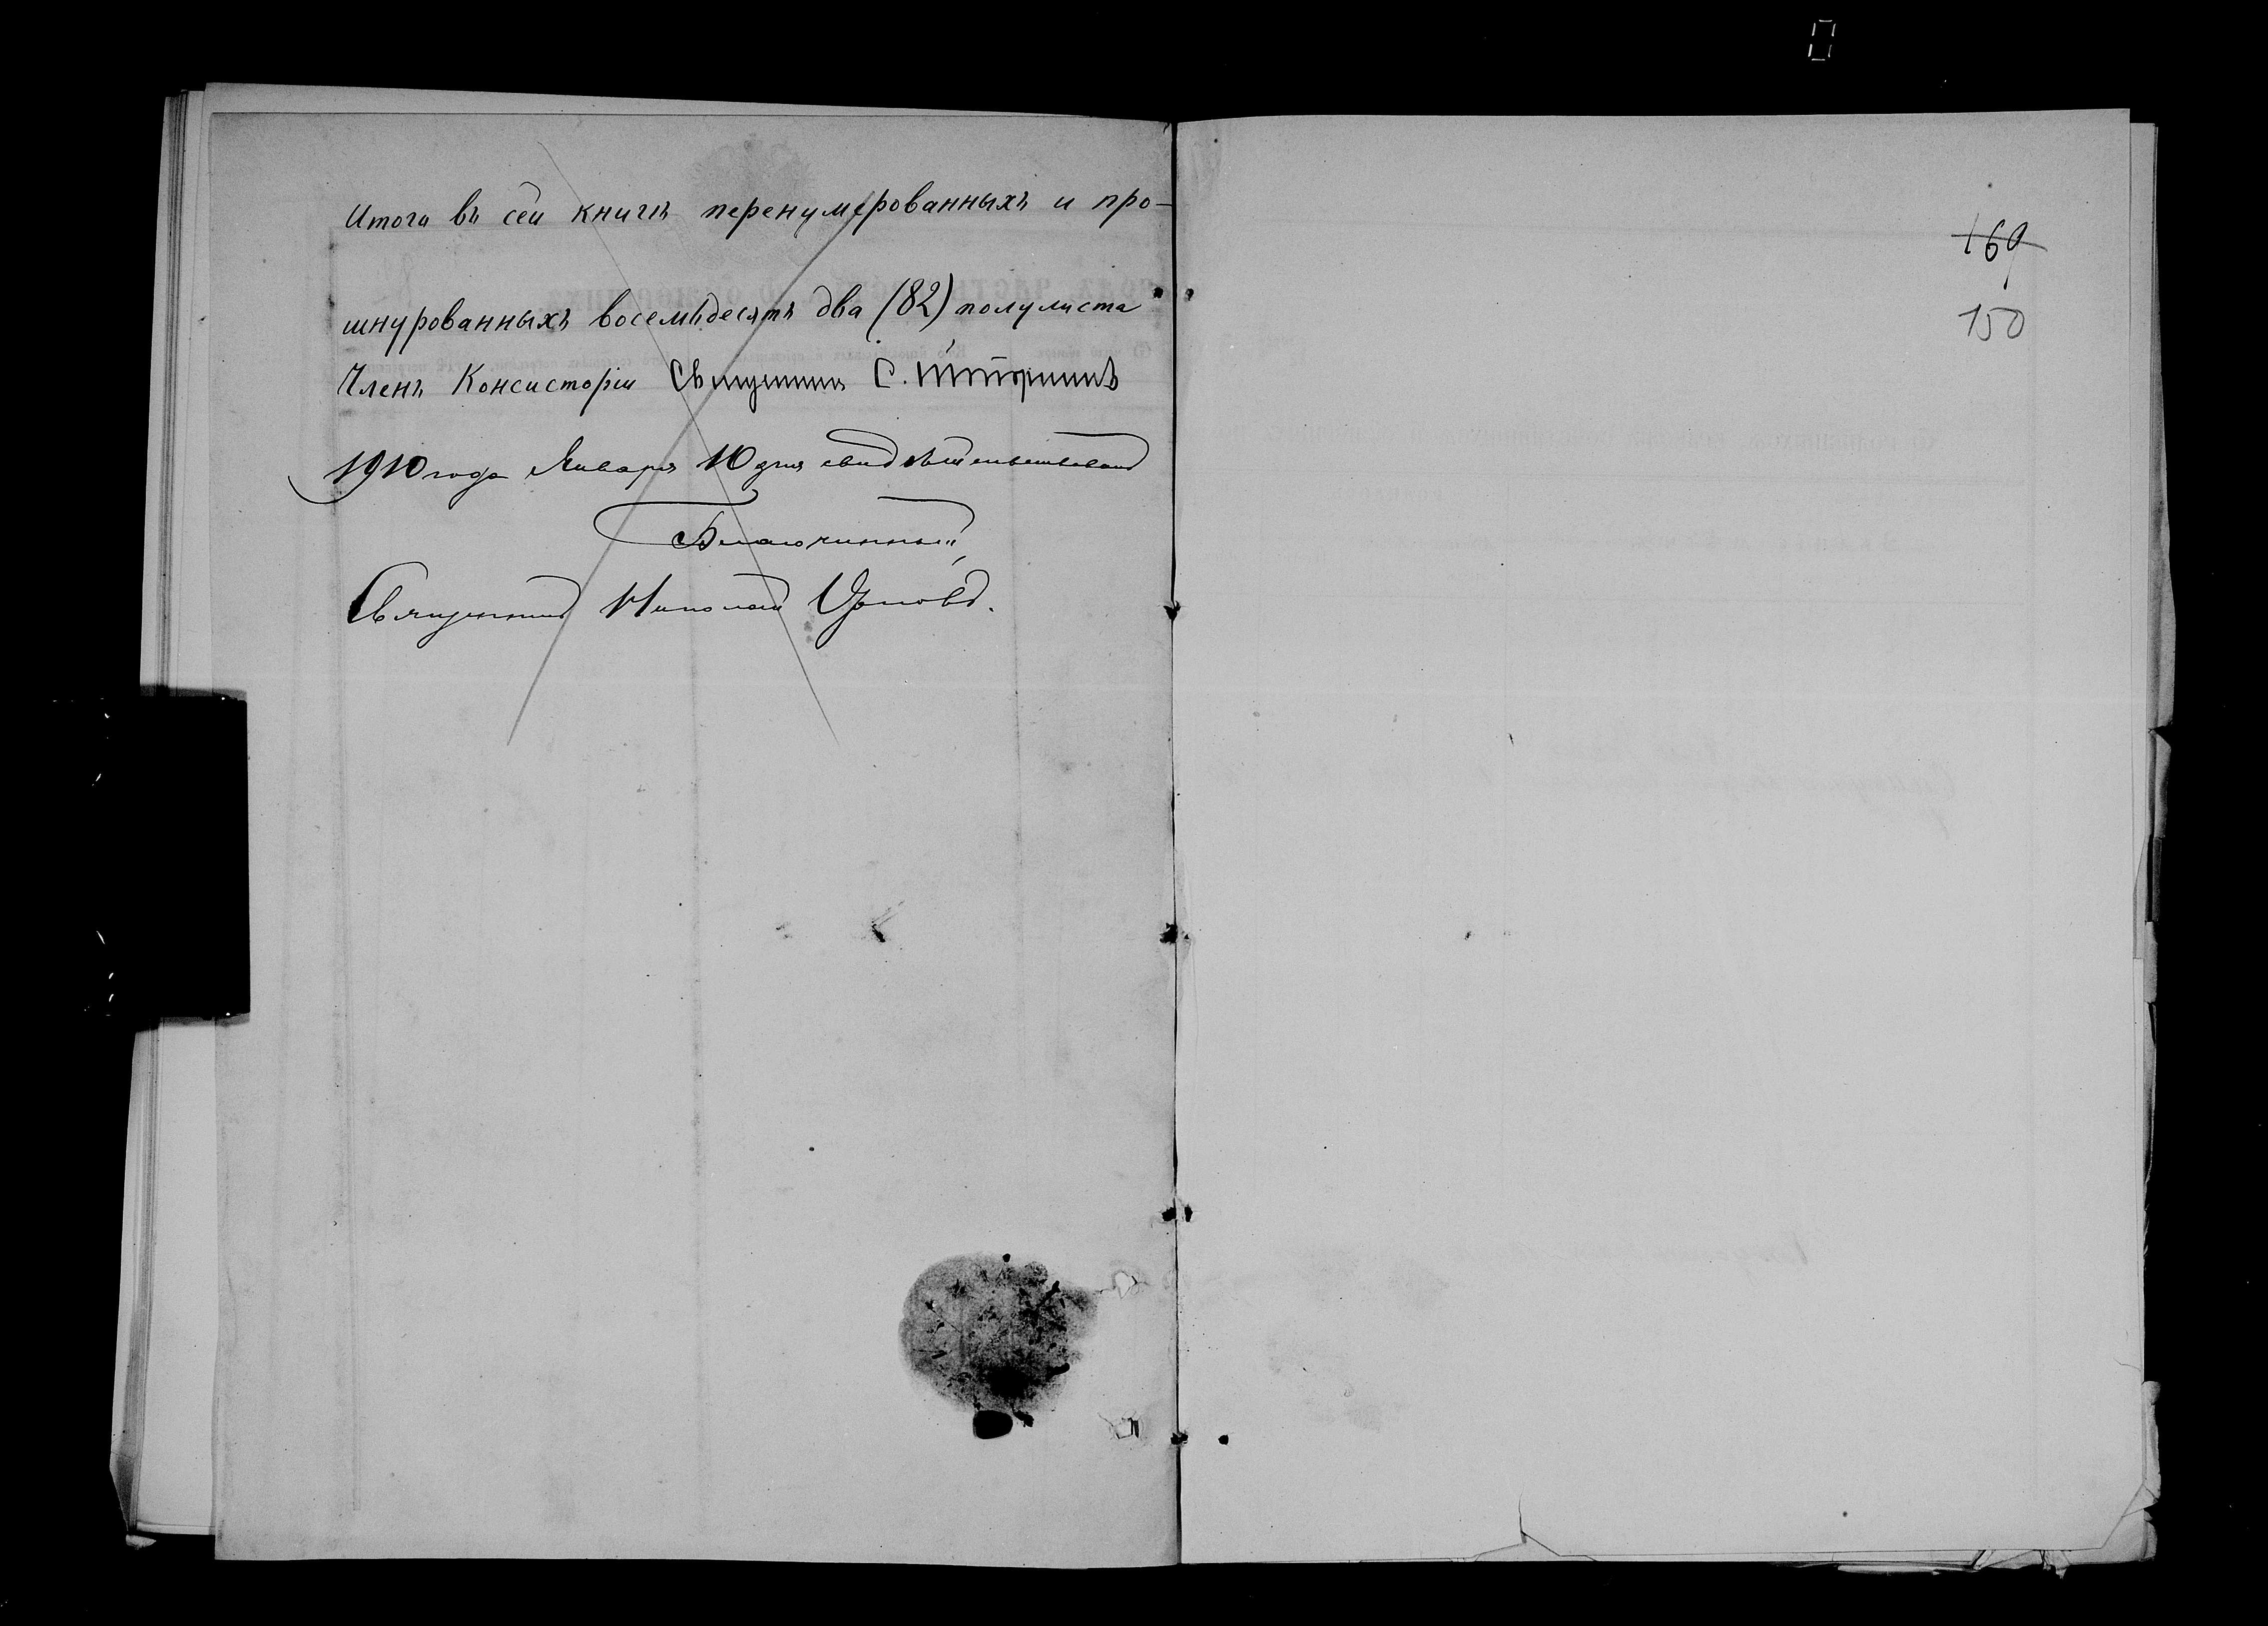 Итога въ сей книгѣ перенумерованныхъ и про-
шнурованныхъ восемьдесятъ два (82) полулиста
Членъ Консисторіи Священникъ С.
1910 года Января 10 дня свидѣтельствовалъ
Благочинный,
Священникъ Николай Орловъ.
169
150